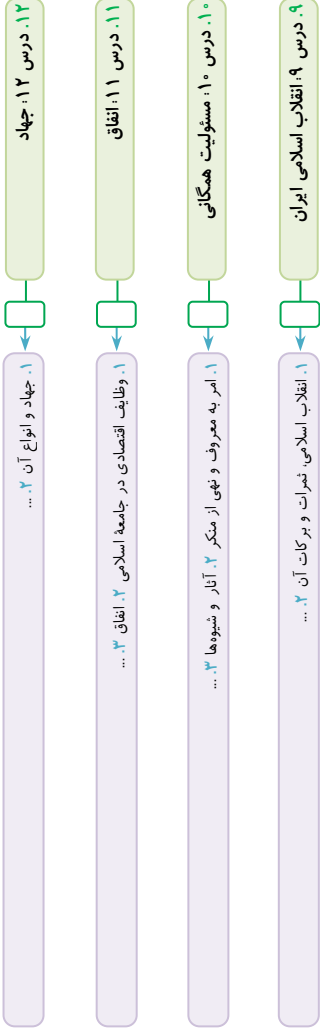 ۹. درس ۹: انقلاب اسلامی ایران
۱. انقلاب اسلامی، ثمرات و برکات آن ۲. ...
۱۰. درس ۱۰: مسئولیت همگانی
۱. امر به معروف و نهی از منکر ۲. آثار و شیوه‌ها ۳. ...
۱۱. درس ۱۱: انفاق
۱. وظایف اقتصادی در جامعهٔ اسلامی ۲. انفاق ۳. ...
۱۲. درس ۱۲: جهاد
۱. جهاد و انواع آن ۲. ...